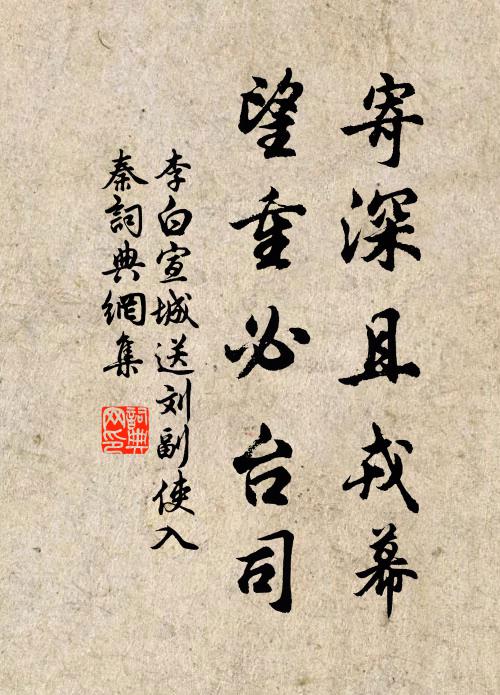 寄深且戎幕
望重必台司
李白宣城送刘副使入
秦詞典網集
詞典网印